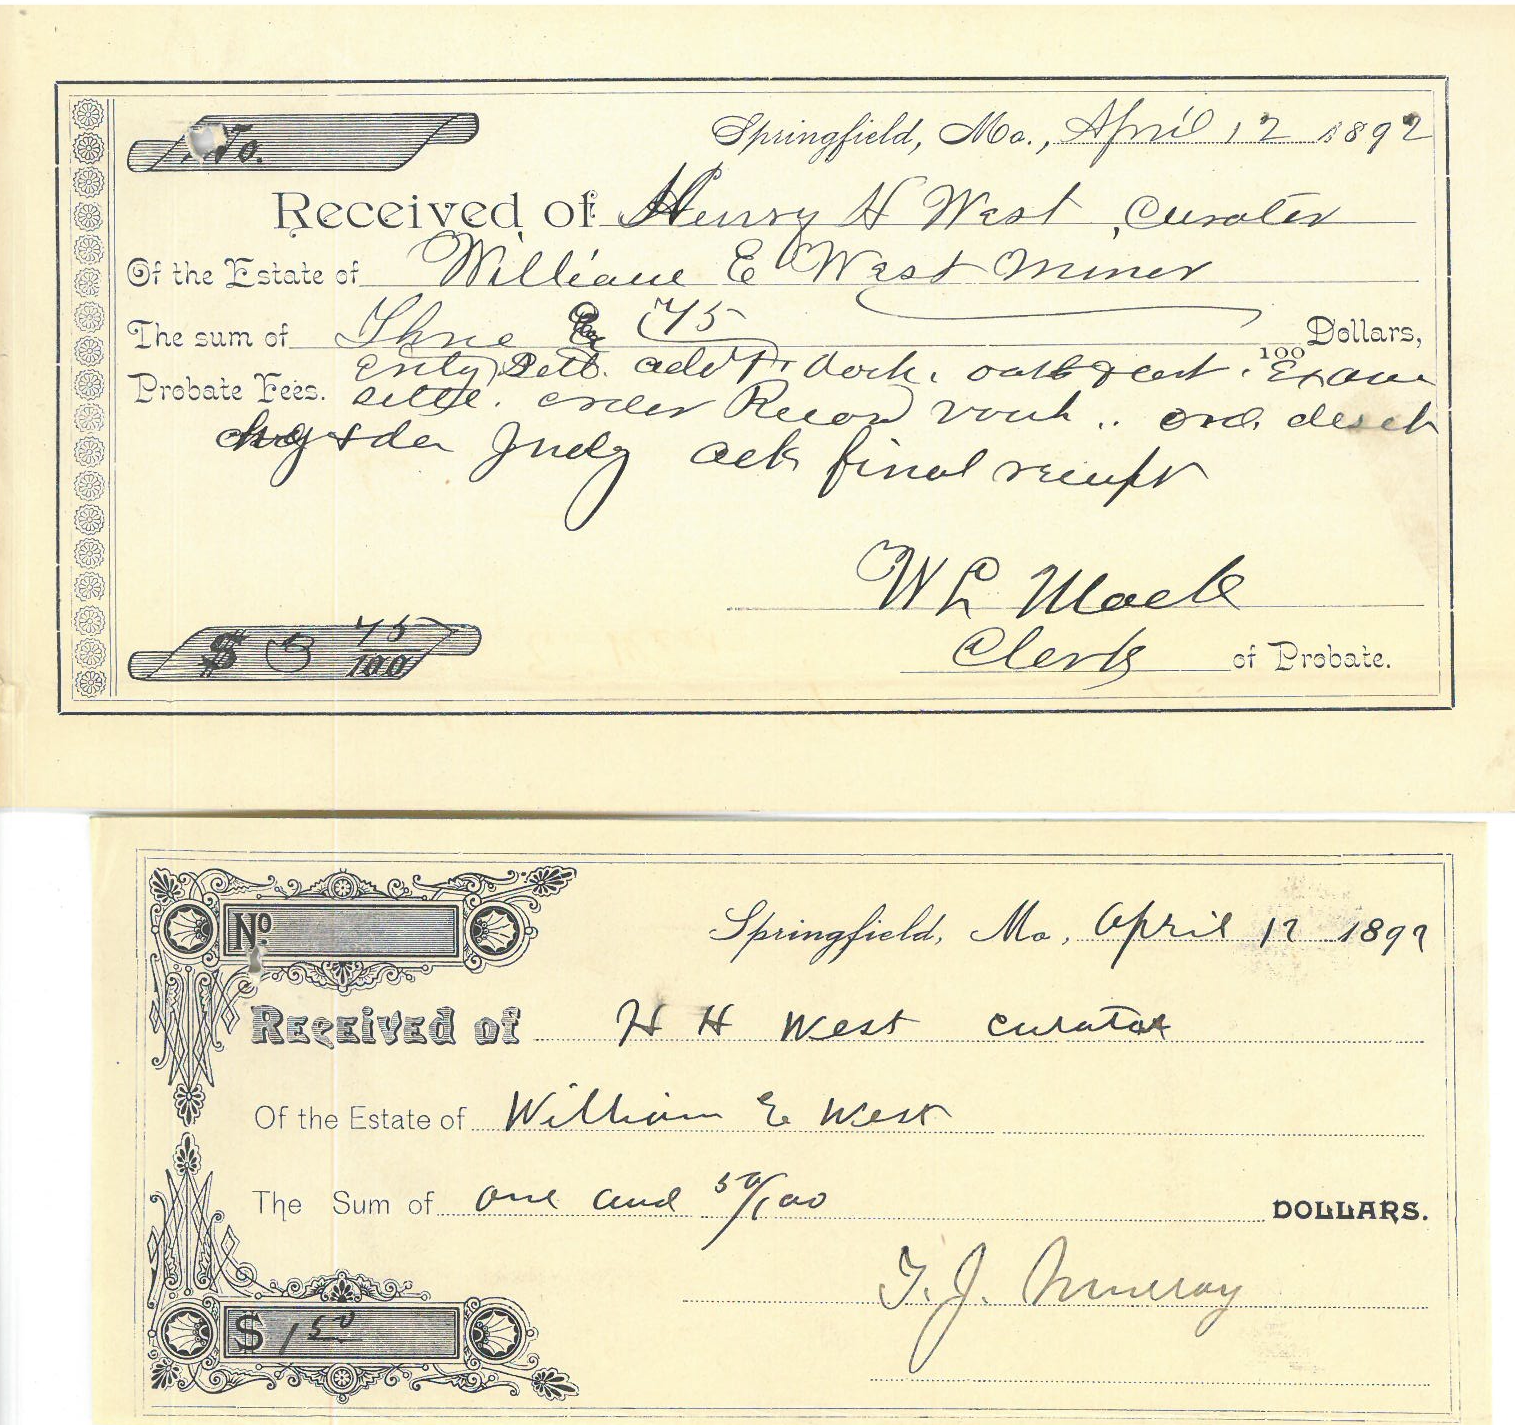 No.
Springfield, Mo., April 12 1892
Received of Henry H West, Curator
Of the Estate of William E West Minor
The sum of Three & 75 Dollars,
100
Probate Fees. Entg Sett. advt. dock. oath & cert. Exam
settl. order Record vouch.. ord. desch
chg & der Judg ack final receipt
W L Mack
Clerk of Probate.
$ 3 75/100
No.
Springfield, Mo, April 12 1892
Received of H H West curator
Of the Estate of William E West
The Sum of One and 50/100 DOLLARS.
T. J. Murray
$ 1 50